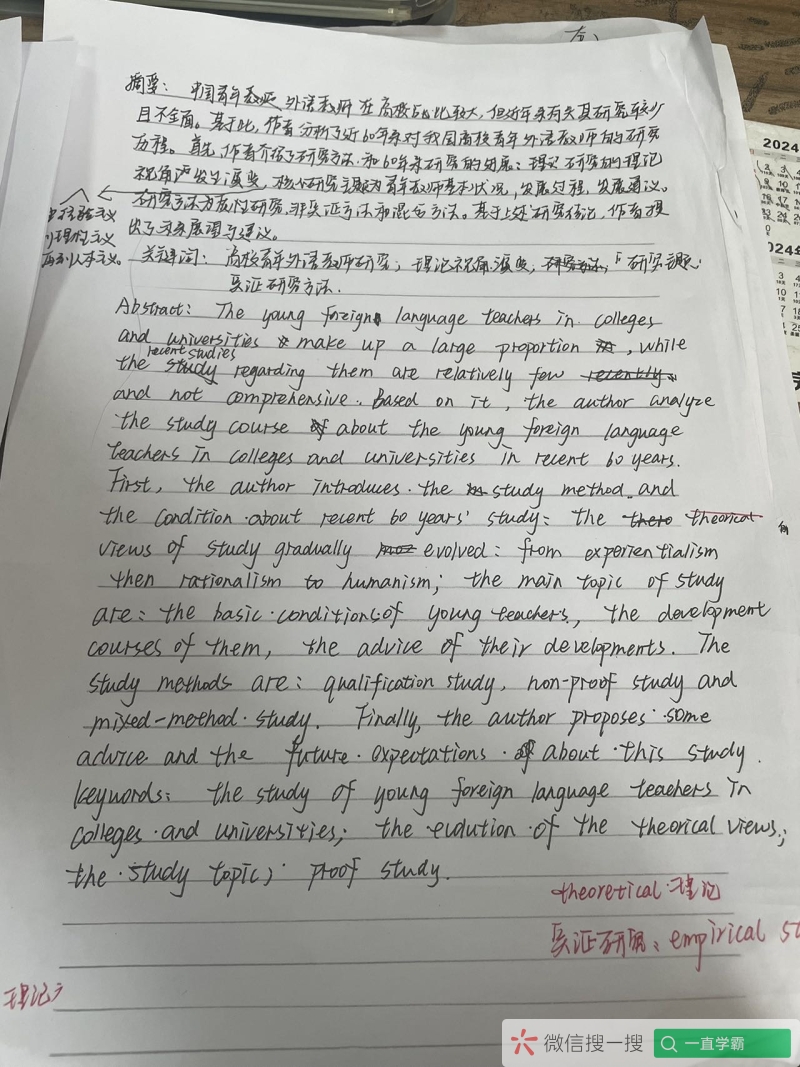 摘要: 中国青年教师 外语教师在高校占比较大,但近年来有关其研究较少
且不全面。基于此,作者分析了近60年来对我国高校青年外语教师的研究
历程。首先,作者介绍了研究方法和60年来研究的进展:
视角产生演变,核心研究主题为青年教师基本状况,发展过程,发展建议。
研究方法为 性研究,非实证方法和混合方法。基于上述研究结论,作者提
出了未来展望与建议。
理性主义
再到人本主义。
关键词: 高校青年外语教师研究;理论视角演变;研究主题;
实证研究方法.
Abstract: The young foreign language teachers in colleges
and universities make up a large proportion , while
recent studies
the study regarding them are relatively few recently
and not comprehensive. Based on it, the author analyze
the study course of about the young foreign language
teachers in colleges and universities in recent 60 years.
First, the author introduces the study method and
the condition about recent 60 years' study: the theorical
views of study gradually evolved: from experientialism
then rationalism to humanism; the main topic of study
are: the basic conditions of young teachers, the development
courses of them, the advice of their developments. The
study methods are: qualification study, non-proof study and
mixed-method study. Finally, the author proposes some
advice and the future expectations of about this study.
keywords: the study of young foreign language teachers in
colleges and universities; the evolution of the theorical views;
the study topic; proof study.
theoretical 理论
实证研究: empirical st
理论
微信搜一搜
一直学霸
2024
2024年